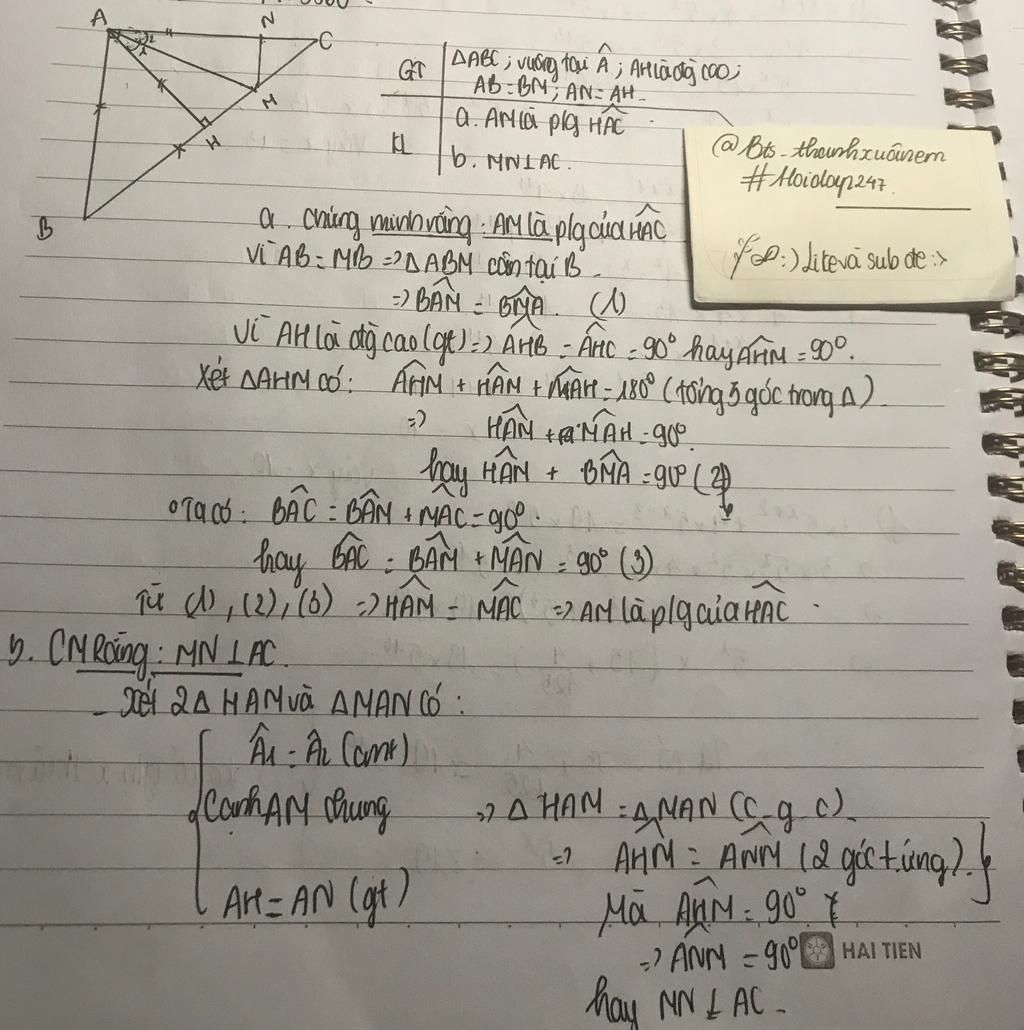 A
N
C
2
1
M
H
B
GT
ΔABC; vuông tại Â; AH là đg cao;
AB = BM; AN = AH.
KL
a. AM là p/g HAC
b. MN ⊥ AC.
@Bts_thanhxuânem
#Hoidap247
:) Like và sub đe :>
a. chứng minh rằng: AM là p/g của HAC
Vì AB = MB => ΔABM cân tại B.
=> BAM = BMA. (1)
Vì AH là đg cao (gt) => AHB = AHC = 90° hay AHM = 90°.
Xét ΔAHM có: AHM + HAM + MAH = 180° (tổng 3 góc trong Δ)
=> HAM + MAH = 90°.
hay HAM + BMA = 90° (2)
Ta có: BAC = BAM + MAC = 90°.
hay BAC = BAM + MAN = 90° (3)
Từ (1), (2), (3) => HAM = MAC => AM là p/g của HAC.
b. CM Rằng: MN ⊥ AC.
- Xét 2Δ HAM và ΔMAN có:
Â1 = Â2 (cmt)
Cạnh AM chung => Δ HAM = Δ MAN (c_g_c).
=> AHM = ANM (2 góc t.ứng).
AH = AN (gt)
Mà AHM = 90°
=> ANM = 90°
HAI TIEN
hay MN ⊥ AC.